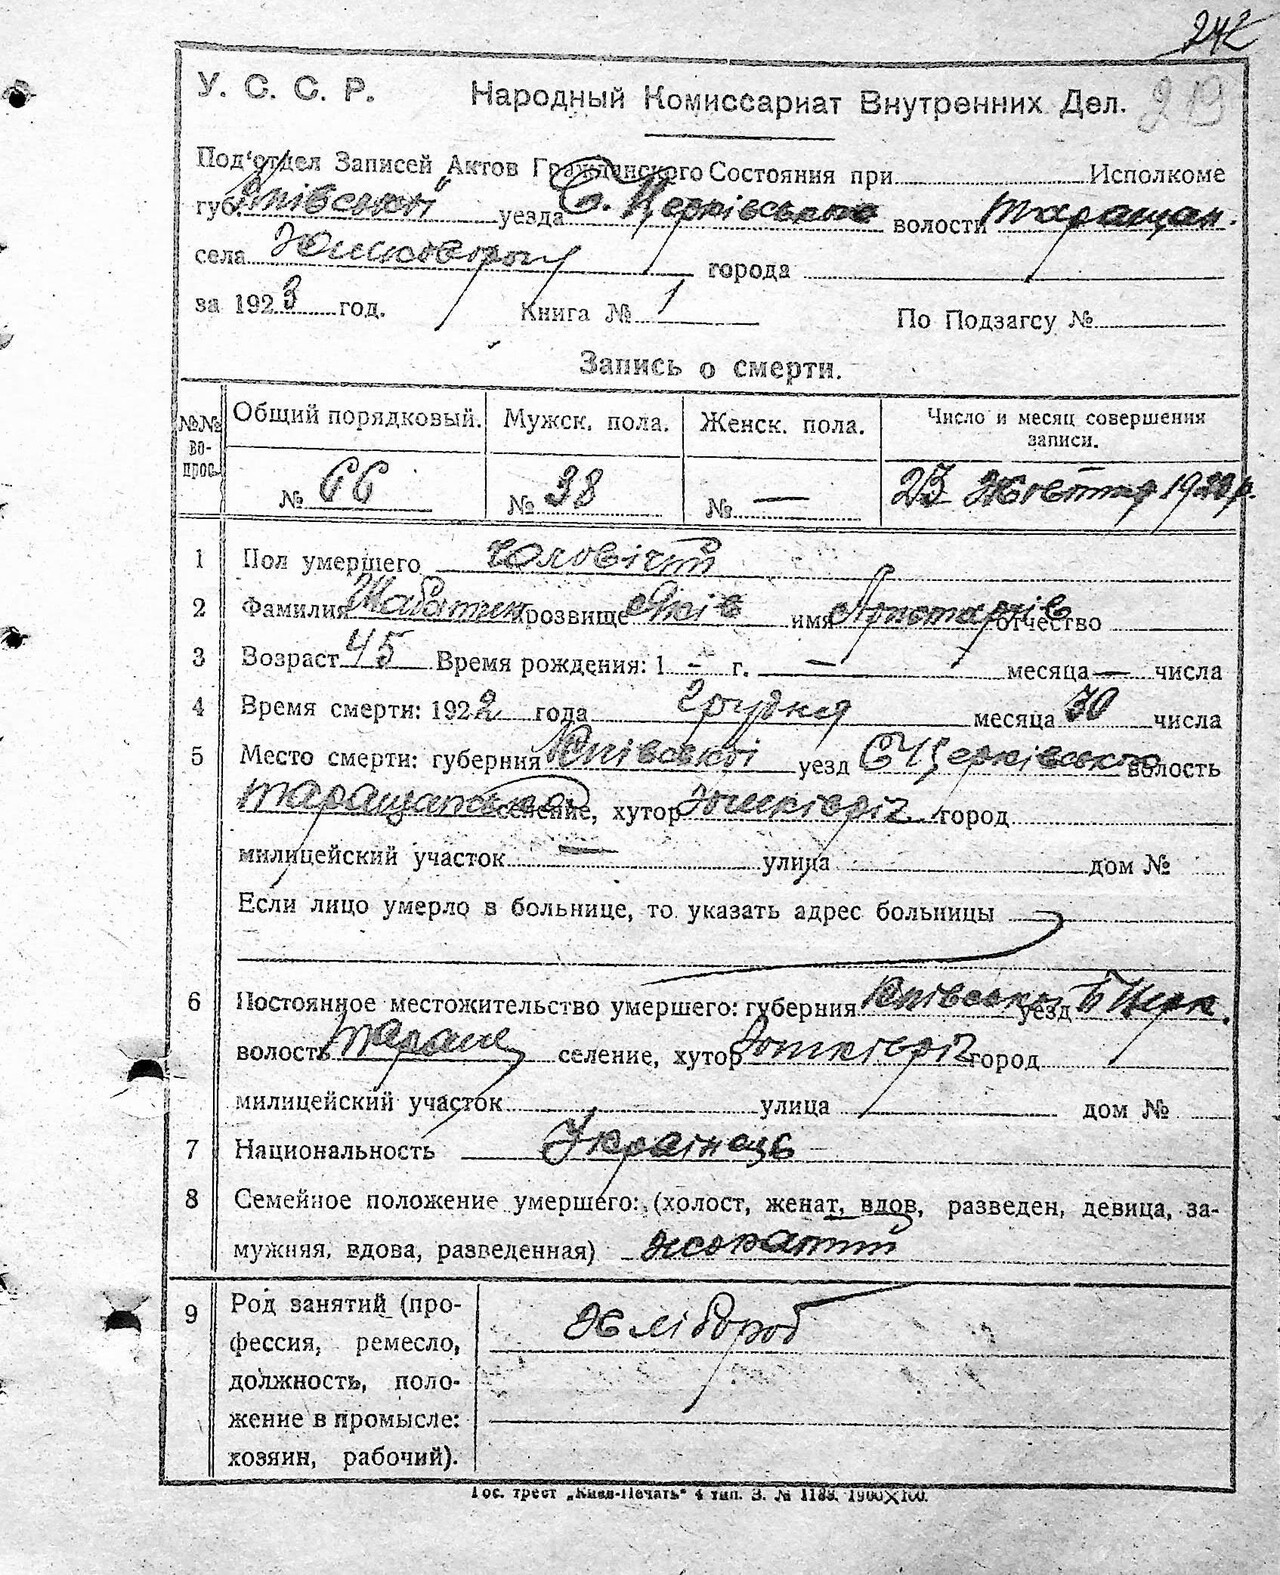 242
У. С. С. Р. Народный Комиссариат Внутренних Дел. 219
Под'отдел Записей Актов Гражданского Состояния при Исполкоме
губ. Київської уезда Б. Церківського волости Таращан.
села города
за 1923 год. Книга № 1 По Подзагсу №
Запись о смерти.
№№ во-прос. Общий порядковый. Мужск. пола. Женск. пола. Число и месяц совершения записи.
№ 66 № 38 № — 23 Жовтня
1 Пол умершего Чоловічий
2 Фамилия прозвище Яків имя Аристархів отчество
3 Возраст 45 Время рождения: 1 – г. — месяца — числа
4 Время смерти: 1922 года Грудня месяца 30 числа
5 Место смерти: губерния Київської уезд Б Церківського волость
Таращанської селение, хутор Юшків ріг город
милицейский участок — улица дом №
Если лицо умерло в больнице, то указать адрес больницы
6 Постоянное местожительство умершего: губерния Київської уезд Б Церк.
волость Таращ селение, хутор Юшків ріг город
милицейский участок улица дом №
7 Национальность Українець
8 Семейное положение умершего: (холост, женат, вдов, разведен, девица, за-
мужняя, вдова, разведенная) жонатий
9 Род занятий (про-
фессия, ремесло, Хлібороб
должность, поло-
жение в промысле:
хозяин, рабочий).
Гос. трест „Киев-Печать" 4 тип. З. № 1188. 1900×100.